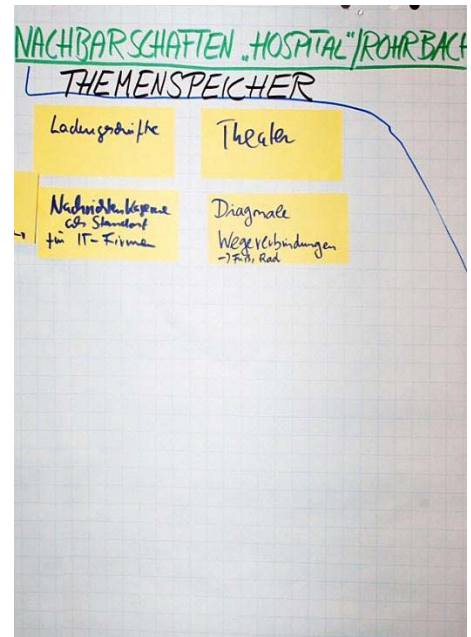 NACHBARSCHAFTEN „HOSPITAL"/ROHRBACH
THEMENSPEICHER
Ladengeschäfte
Theater
Nachrichtenkaserne
als Standort
für IT-Firmen
Diagonale
Wegeverbindungen
→ Fuß, Rad